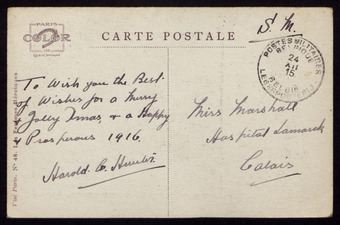 PARIS
COLOR
CARTE POSTALE
S. M.
POSTES MILITAIRES
BELGIQUE
24
XII
15
To Wish you the Best
of Wishes for a Merry
Jolly Xmas, & a Happy
& Prosperous 1916.
Harold. C. Hunter.
Miss Marshall
Hospital Lamarck
Calais